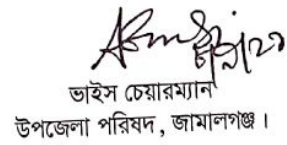 ভাইস চেয়ারম্যান
উপজেলা পরিষদ, জামালগঞ্জ।